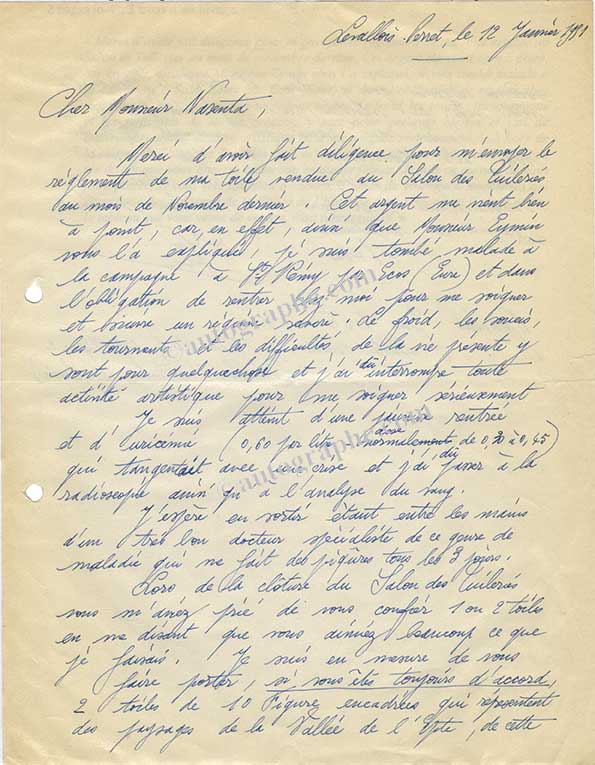 Levallois-Perret, le 12 Janvier 1951
Cher Monsieur Vasenta,
Merci d'avoir fait diligence pour m'envoyer le
règlement de ma toile vendue au Salon des Tuileries
au mois de Novembre dernier. Cet argent me vient bien
à point, car, en effet, ainsi que Monsieur Eymin
vous l'a expliqué, je suis tombé malade à
la campagne à St Rémy par Ecos (Eure) et dans
l'obligation de rentrer chez moi pour me soigner
et suivre un régime sévère. Le froid, les soucis,
les tourments et les difficultés de la vie présente y
sont pour quelquechose et j'ai dû interrompre toute
activité artistique pour me soigner sérieusement
Je suis atteint d'une jaunisse rentrée
et d'uricémie (0,60 par litre dose normalement de 0,20 à 0,45)
qui avec une crise et j'ai dû passer à la
radioscopie ainsi qu'à l'analyse du sang.
J'espère en sortir étant entre les mains
d'un très bon docteur spécialiste de ce genre de
maladie qui me fait des piqûres tous les 3 jours.
Lors de la clôture du Salon des Tuileries
vous m'aviez prié de vous confier 1 ou 2 toiles
en me disant que vous aimiez beaucoup ce que
je faisais. Je suis en mesure de vous
faire porter, si vous êtes toujours d'accord,
2 toiles de 10 Figure encadrées qui représentent
des paysages de la Vallée de l'Epte, de cette
©autographe.com
©autographe.com